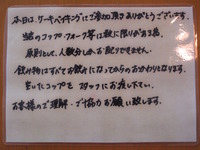 本日は、ケーキバイキングにご参加頂きありがとうございます。
当店のコップ・フォーク等は数に限りがある為、
原則として、人数分しかお配りできません。
飲み物はすべてお飲みになってからのおかわりとなります。
空いたコップを スタッフにお渡し下さい。
お客様のご理解・ご協力お願い致します。